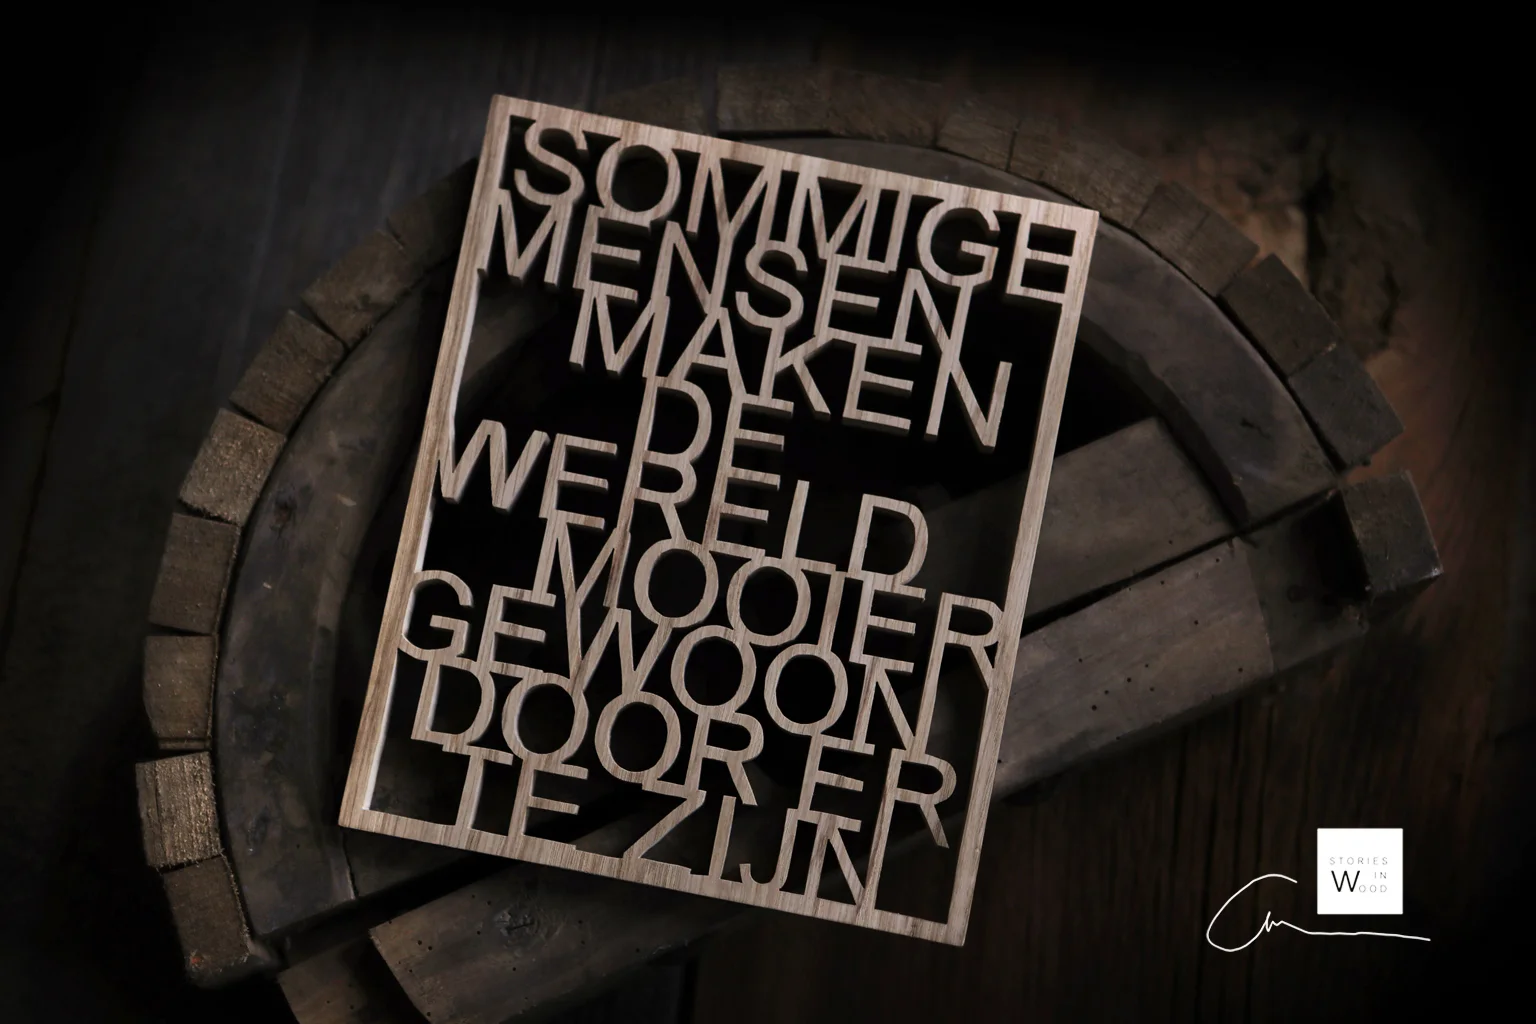 SOMMIGE
MENSEN
MAKEN
DE
WERELD
MOOIER
GEWOON
DOOR ER
TE ZIJN
STORIES
IN
WOOD